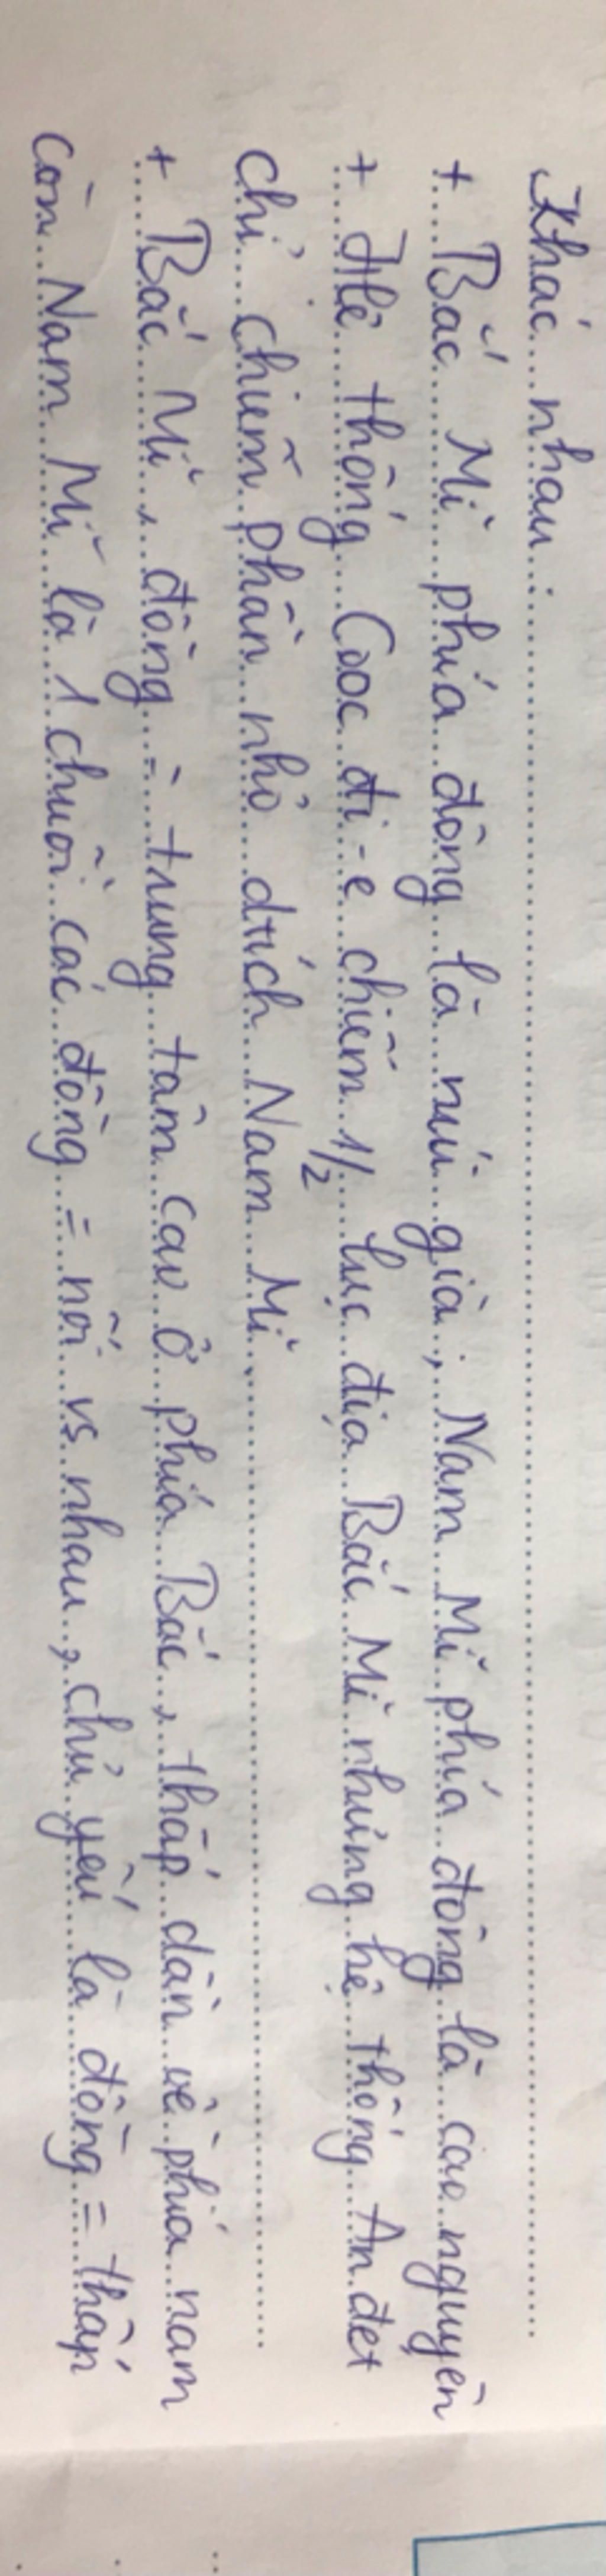 Khác nhau:
+ Bắc Mĩ phía đông là núi già; Nam Mĩ phía đông là cao nguyên
+ Hệ thống Cooc-đi-e chiếm 1/2 lục địa Bắc Mĩ nhưng hệ thống An đet
chỉ chiếm phần nhỏ dtích Nam Mĩ.
+ Bắc Mĩ, đồng = trung tâm cao ở phía Bắc, thấp dần về phía nam
còn Nam Mĩ là 1 chuỗi các đồng = nối vs nhau, chủ yếu là đồng = thấp